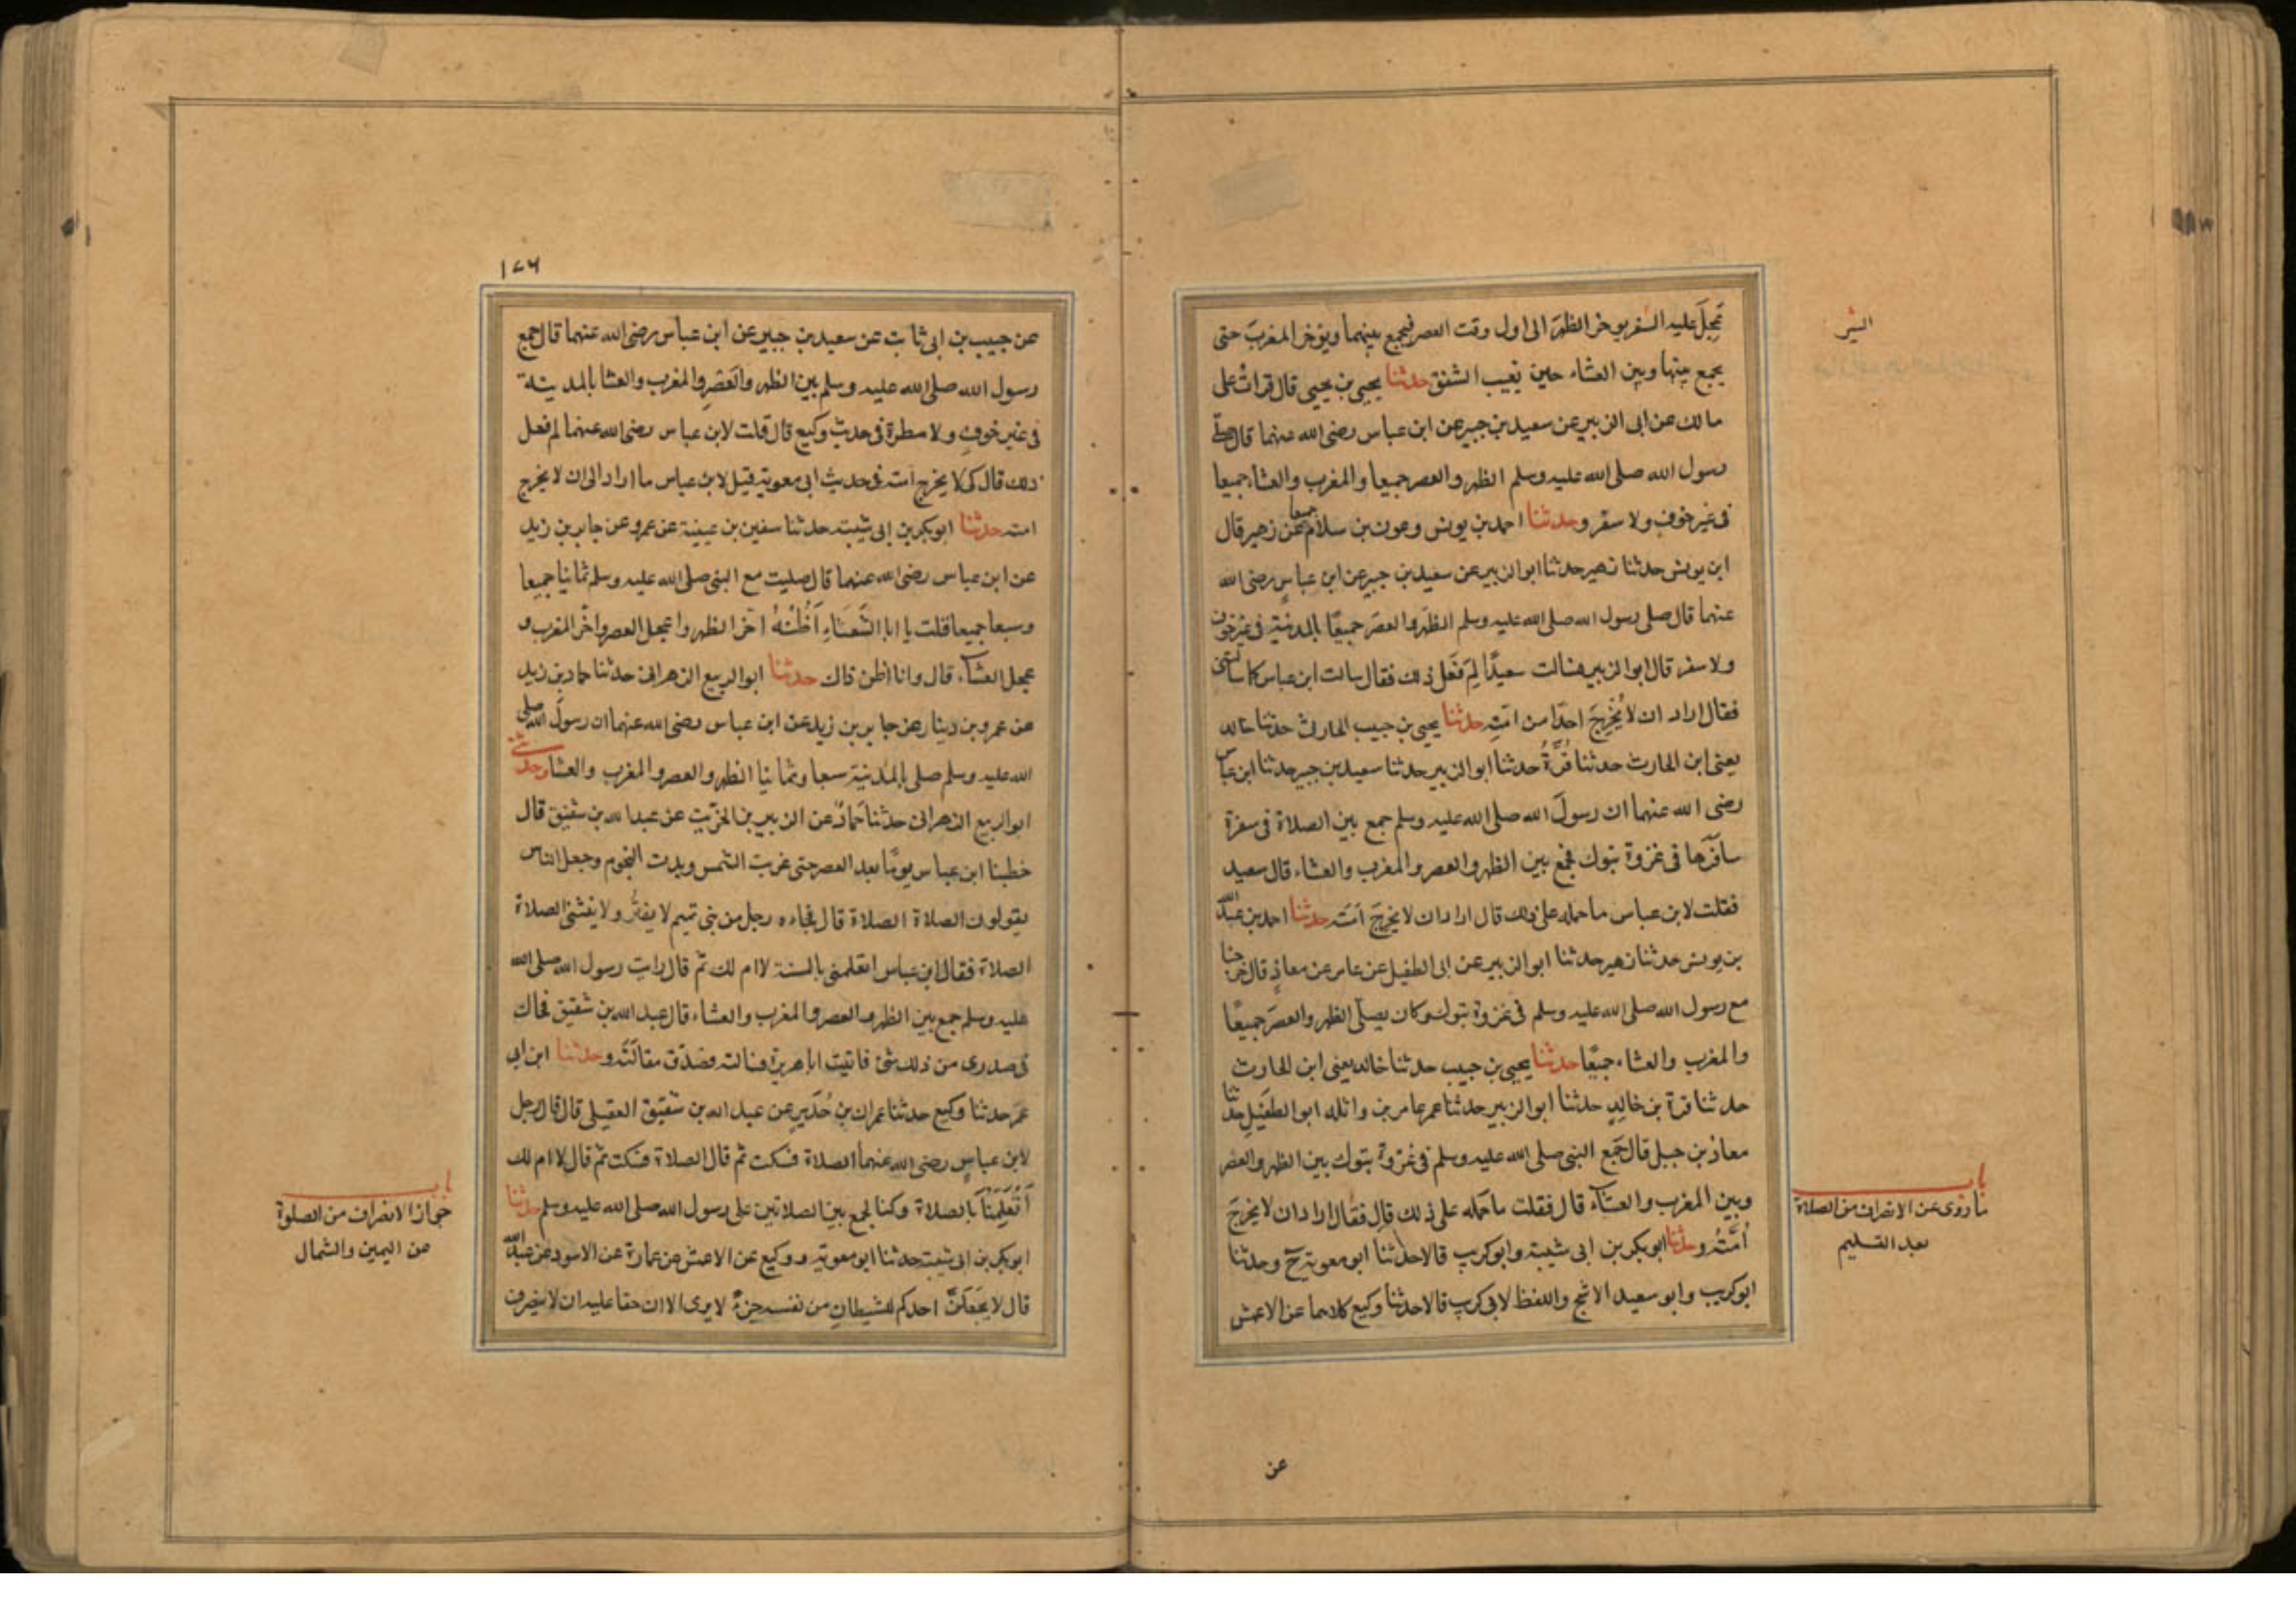 عَجِلَ عليه السفر يوخر الظهرَ الى اول وقت العصر فيجمع بينهما ويؤخر المغربَ حتى
السَّيْر
يجمع بينها وبين العشاء حين يغيب الشفق حدثنا يحيى بن يحيى قال قراتُ على
مالك عن ابى الزبير عن سعيد بن جبير عن ابن عباس رضى الله عنهما قال صلى
رسول الله صلى الله عليه وسلم الظهر والعصر جميعا والمغرب والعشاء جميعا
فى غير خوف ولا سفر وحدثنا احمد بن يونس وعون بن سلام جميعا عن زهير قال
ابن يونس حدثنا زهير حدثنا ابوالزبير عن سعيد بن جبير عن ابن عباس رضى الله
عنهما قال صلى رسول الله صلى الله عليه وسلم الظهر والعصرَ جميعًا بالمدينة فى غير خوف
ولا سفر قال ابوالزبير فسالت سعيدًا لِمَ فَعَل ذلك فقال سالت ابن عباس كما سالتنى
فقال اراد ان لا يُحْرِجَ احدًا من امّتِه حدثنا يحيى بن حبيب الحارثى حدثنا خالد
يعنى ابن الحارث حدثنا قُرَّةُ حدثنا ابوالزبير حدثنا سعيد بن جبير حدثنا ابن عباس
رضى الله عنهما ان رسولَ الله صلى الله عليه وسلم جمع بين الصلاة فى سفرة
سافرها فى غزوة تبوك فجمع بين الظهر والعصر والمغرب والعشاء قال سعيد
فقلت لابن عباس ما حمله على ذلك قال اراد ان لا يحرجَ امّتَه حدثنا احمد بن عبد الله
بن يونس حدثنا زهير حدثنا ابوالزبير عن ابى الطفيل عن عامر عن معاذٍ قال خرجنا
مع رسول الله صلى الله عليه وسلم فى غزوة تبوك وكان يصلّى الظهر والعصرَ جميعًا
والمغرب والعشاء جميعًا حدثنا يحيى بن حبيب حدثنا خالد يعنى ابن الحارث
حدثنا قرة بن خالدٍ حدثنا ابوالزبير حدثنا عمر عامر بن واثلة ابوالطفَيْلِ حدثنا
معاذ بن جبل قال جَمع النبى صلى الله عليه وسلم فى غزوة تبوك بين الظهر والعصر
وبين المغرب والعشاء قال فقلت ما حَمَله على ذلك قال فقال اراد ان لا يحرجَ
اُمَّتَهُ وحدثنا ابوبكر بن ابى شيبة وابوكريب قالا حدثنا ابو معوية ح وحدثنا
ابوكريب وابو سعيد الاشج واللفظ لابى كريب قالا حدثنا وكيع كلاهما عن الاعمش
باب
ما روى عن الانصراف من الصلاة
بعد التسليم
عن
١٧٦
عن حبيب بن ابى ثابت عن سعيد بن جبير عن ابن عباس رضى الله عنهما قال جمع
رسول الله صلى الله عليه وسلم بين الظهر والعَصْرِ والمغرب والعشا بالمدينة
فى غير خوفٍ ولا مطرة فى حديث وكيع قال قلت لابن عباس رضى الله عنهما لم فعل
ذلك قال كى لا يحرج امته فى حديث ابى معوية قيل لابن عباس ما اراد الى ان لا يحرج
امته حدثنا ابوبكر بن ابى شيبة حدثنا سفين بن عيينة عن عمرو عن جابر بن زيد
عن ابن عباس رضى الله عنهما قال صليت مع النبى صلى الله عليه وسلم ثمانيا جميعا
وسبعا جميعا قلت يا ابا الشَّعثَاءِ اَظُنُّهُ اخّر الظهر واعجل العصر واخّر المغرب و
عجل العشاء قال وانا اظن ذاك حدثنا ابوالربيع الزهرانى حدثنا حماد بن زيد
عن عمرو بن دينار عن جابر بن زيد عن ابن عباس رضى الله عنهما ان رسولَ الله صلى
الله عليه وسلم صلى بالمدينة سبعا وثمانيا الظهر والعصر والمغرب والعشا وحدثنى
ابوالربيع الزهرانى حدثنا حَمّادٌ عن الزبير بن الخِرّيت عن عبد الله بن شقيق قال
خطبنا ابن عباس يومًا بعد العصر حتى غربت الشمس وبدت النجوم وجعل الناس
يقولون الصلاة الصلاة قال فجاءه رجل من بنى تميم لا يفتُر ولا ينثنى الصلاة
الصلاة فقال ابن عباس اتعلمنى بالسنة لا ام لك ثم قال رايت رسول الله صلى الله
عليه وسلم جمع بين الظهر والعصر والمغرب والعشاء قال عبد الله بن شقيق فحاك
فى صدرى من ذلك شئ فاتيت اباهريرة فسالته فصَدَّق مقالَتَه وحدثنا ابن ابى
عمَرَ حدثنا وكيع حدثنا عمران بن حُدَيرٍ عن عبد الله بن شقيق العقيلى قال قال رجل
لابن عباسٍ رضى الله عنهما الصلاة فسكت ثم قال الصلاة فسكت ثم قال لا ام لك
اَتُعَلِّمُنَا بالصلاة وكنا نجمع بين الصلاتين على رسول الله صلى الله عليه وسلم حدثنا
باب
جواز الانصراف من الصلوة
عن اليمين والشمال
ابوبكر بن ابى شيبة حدثنا ابو معوية ووكيع عن الاعمش عن عمارة عن الاسود عن عبد الله
قال لا يجعَلَنَّ احدكم للشيطانِ من نفسه جزءً لا يرى الا ان حقا عليه ان لا ينصرف